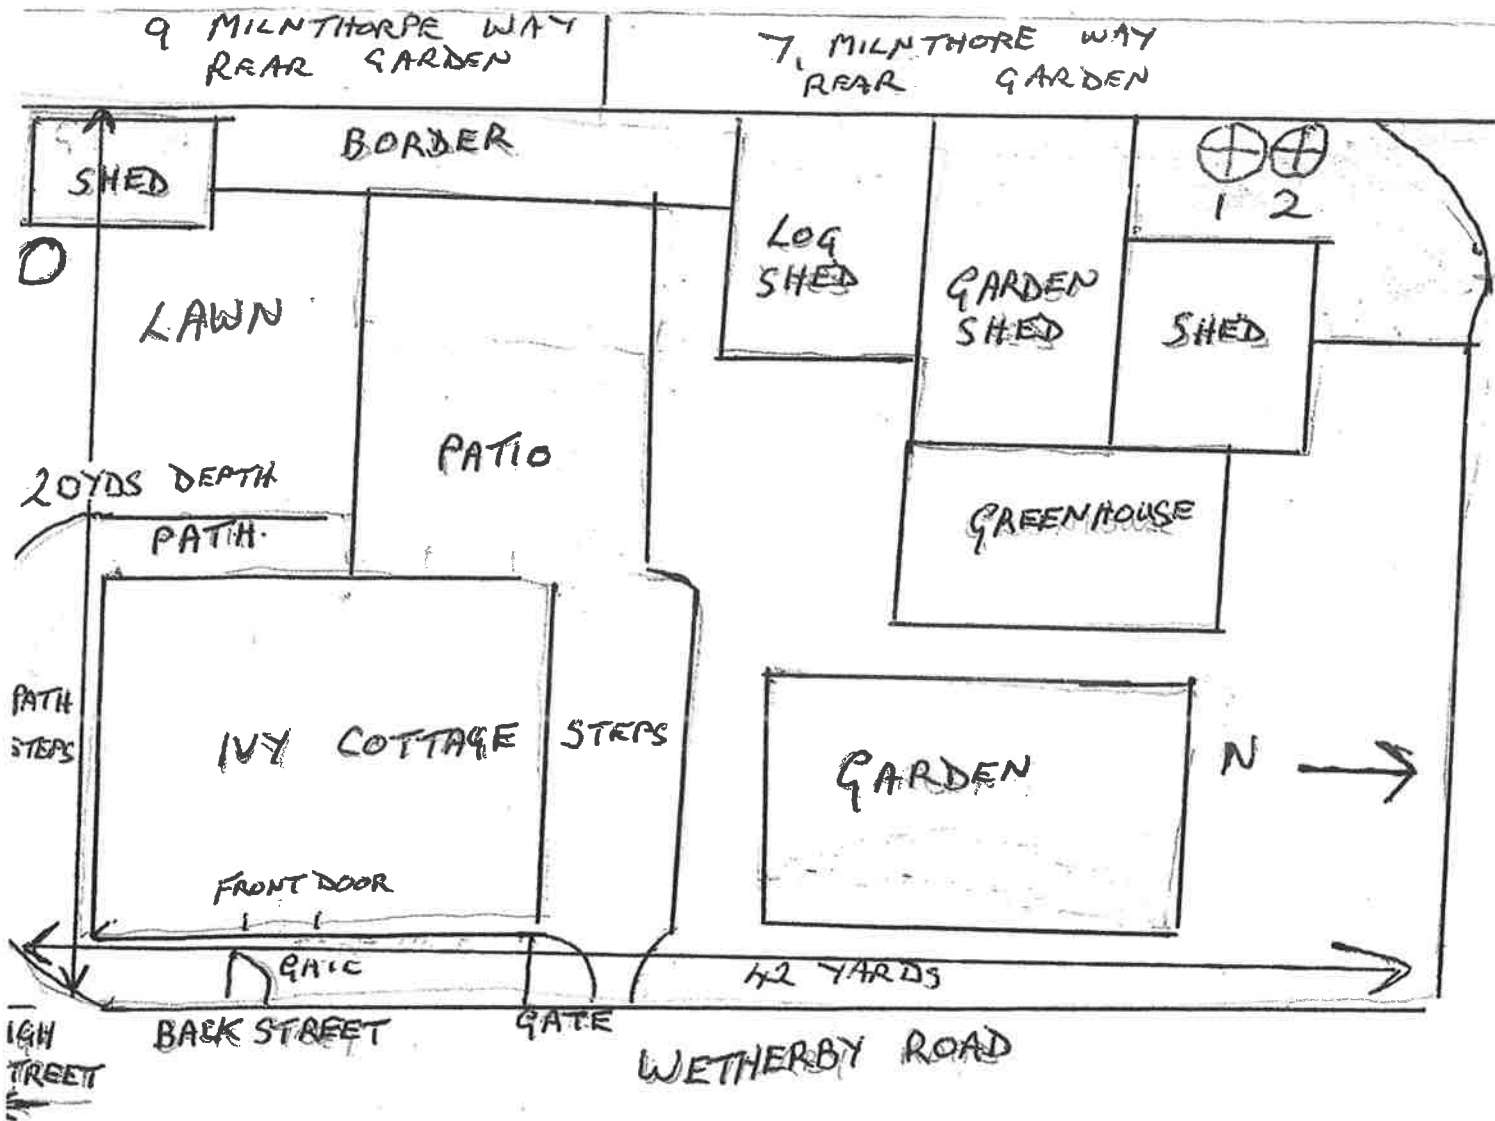 9 MILNTHORPE WAY
REAR GARDEN
7, MILNTHORE WAY
REAR GARDEN
BORDER
SHED
1 2
LOG
SHED
GARDEN
SHED
SHED
LAWN
PATIO
20YDS DEPTH
PATH.
GREENHOUSE
PATH
STEPS
IVY COTTAGE
STEPS
GARDEN
N
FRONT DOOR
GATE
42 YARDS
IGH
TREET
BACK STREET
GATE
WETHERBY ROAD